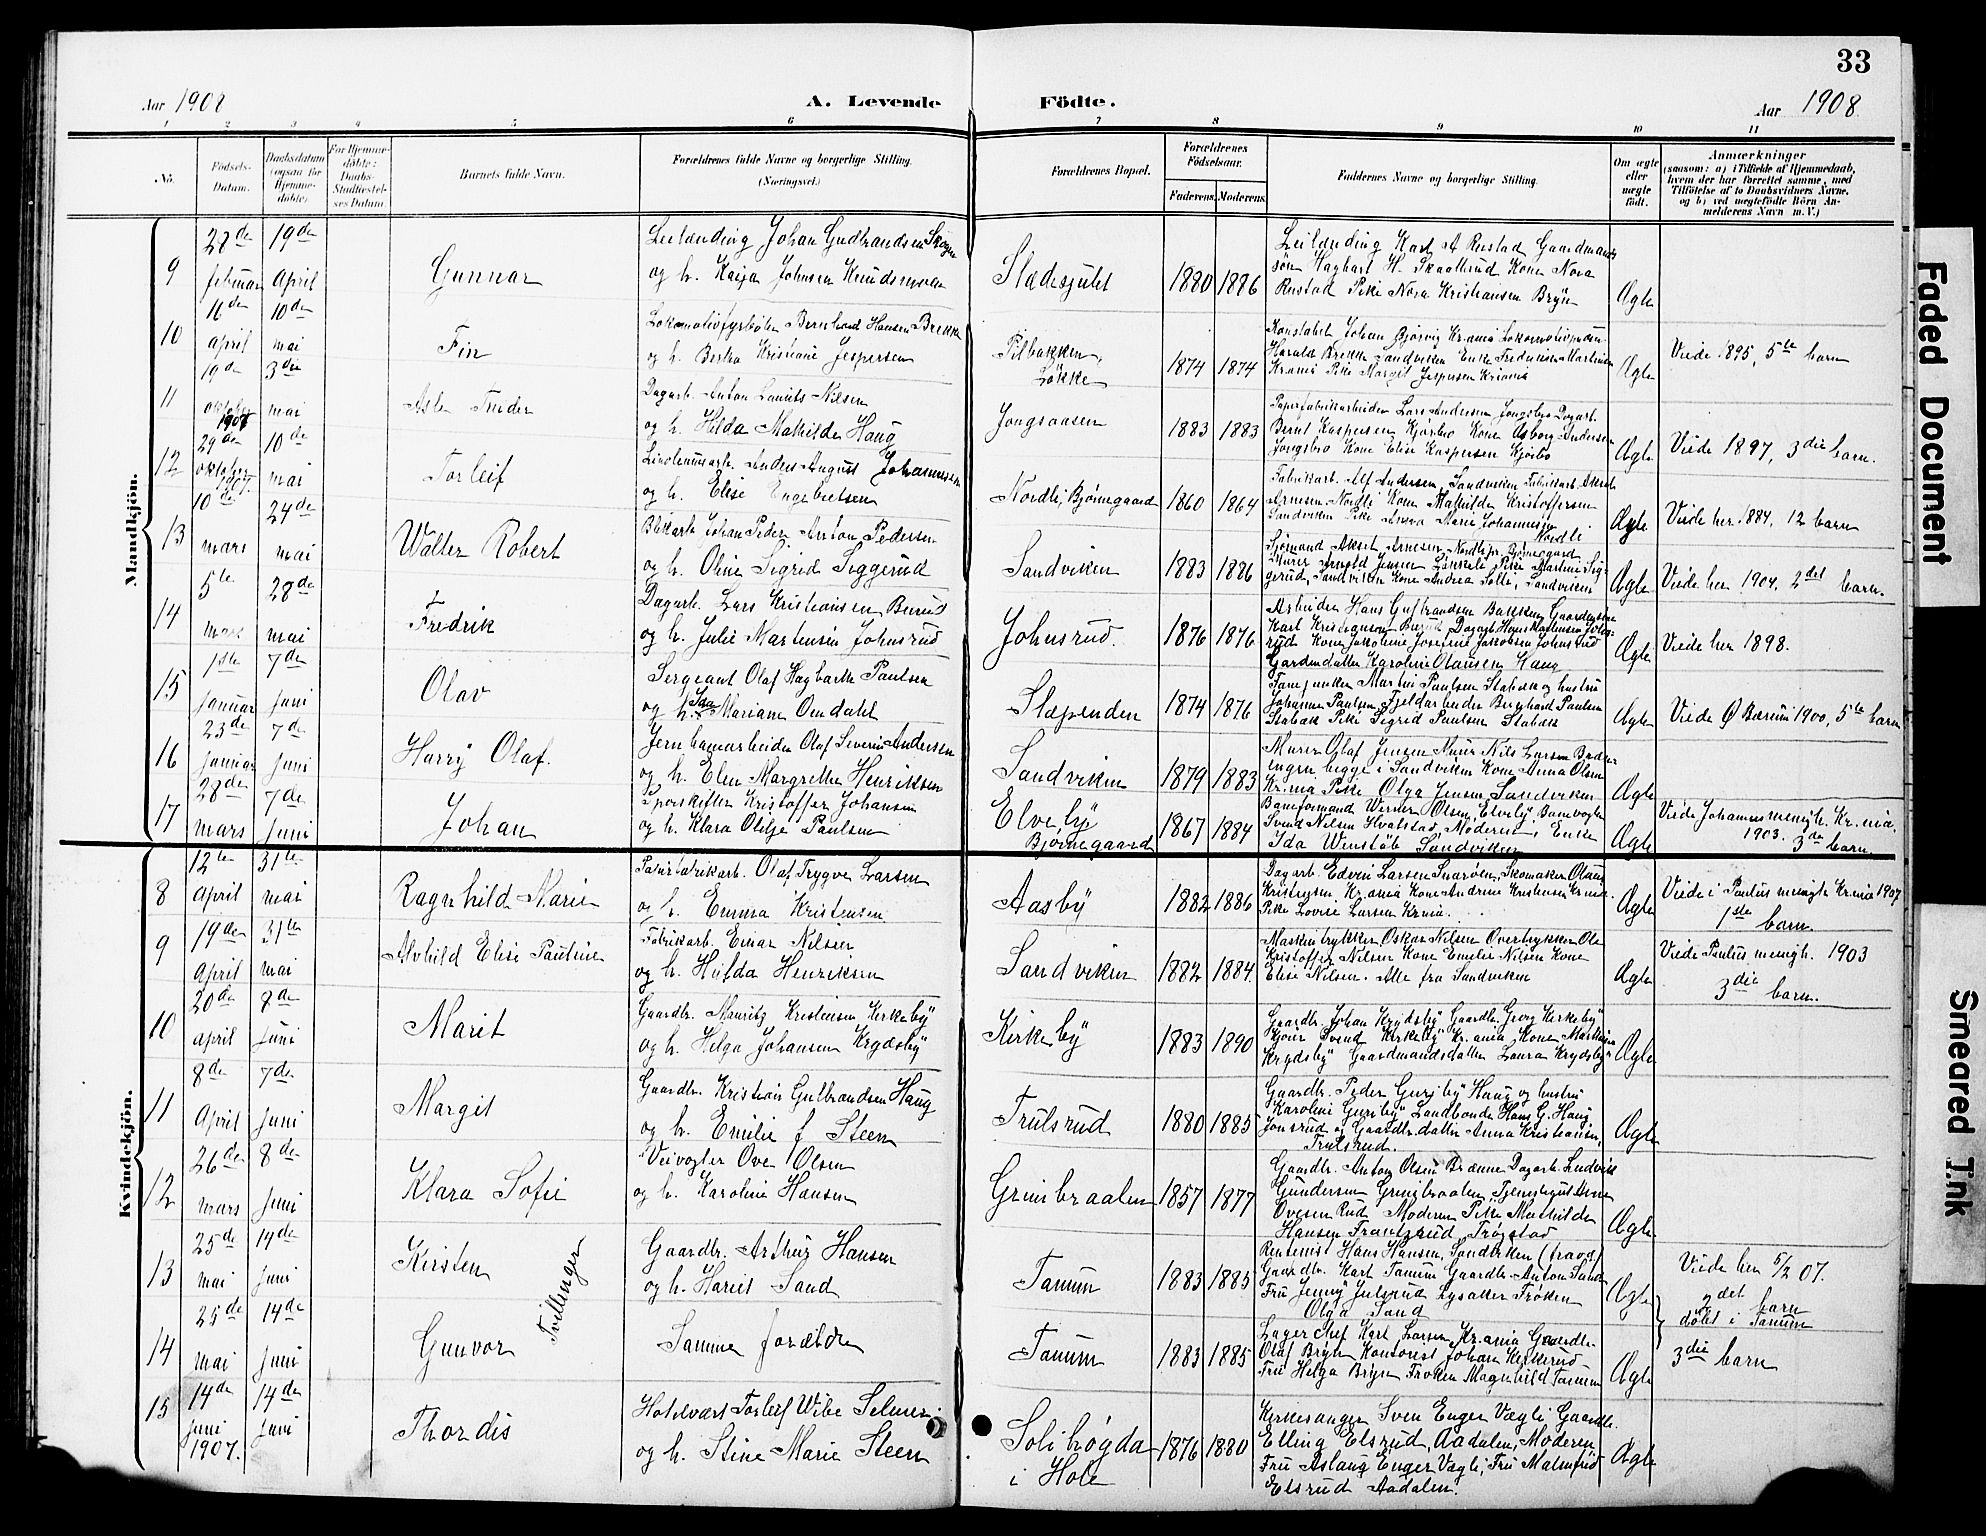 33
Aar 1908
A. Levende
Födte.
Aar 1908
1 2 3 4 5 6 7 8 9 10 11
No.
Födsels-
Datum.
Daabsdatum
(ogsaa for
Hjemme-
döbte).
For Hjemme-
döbte:
Daabs-
Stadfæstel-
ses Datum.
Barnets fulde Navn.
Forældrenes fulde Navne og borgerlige Stilling.
(Næringsvei.)
Forældrenes Bopæl.
Forældrenes
Födselsaar.
Faderens.
Moderens.
Faddernes Navne og borgerlige Stilling.
Om ægte
eller
uægte
født.
Anmærkninger
(saasom: a) i Tilfælde af Hjemmedaab,
hvem der har forrettet samme, med
Tilföielse af to Daabsvidners Navne,
og b) ved uægtefödte Börn An-
melderens Navn m. V.)
Mandkjön.
9
28de
februar
19de
April
Gunnar
Leilænding Johan Gudbrandsen
og h. Kaija Johnsen
1880 1886
Leilænding Karl A Rustad Gaardmands
søn Hagbart H. Kone Nora
Rustad Pike Nora Kristiansen Bryn
Ægte
10
16de
april
10de
mai
Fin
Lokomotivfyrbøter Bernhard Hansen Brekke
og h. Bertha Kristiane Jespersen
Pilbakken,
Løkke
1874 1874
Konstabel Johan Bjørvig Kr.ania
Harald Brekke Sandviken Enke Martinsen
Kr.ania Pike Margit Jespersen Kr.ania
Ægte
Viede 1895, 5te barn
11
19de
oktober
1907
3die
mai
Dagarb. Anton Laurits Nilsen
og h. Hilda Mathilde Haug
Jongsaasen
1883 1883
Papirfabrikarbeider Lars Andersen Jongsbro Dagarb.
Bernt Kaspersen Kjørbo Kone Andersen
Jongsbro Kone Elise Kaspersen Kjørbo
Ægte
Viede 1897, 3die barn.
12
29de
oktober
1907.
10de
mai
Torleif
Linoleumsarb. Anders August Johannessen
og h. Elise Engebretsen
Nordli, Bjørnegaard
1860 1864
Fabrikarb. Alf Andersen, Sandviken Fabrikarb.
Arnesen Nordli Kone Mathilde Kristoffersen
Sandviken Pike Marie Johannesen
Nordli
Ægte
Viede her 1884, 12 barn
13
10de
mars
24de
mai
Walter Robert
Blikarb. Johan Peder Anton Pedersen
og h. Oline Sigrid Siggerud
Sandviken
1883 1886
Sjømand Aksel Arnesen Nordli pr. Bjørnegaard
Murer Arnold Jensen Pike Martine Sig-
gerud, Sandviken Kone Andrea Solli, Sandviken
Ægte
Viede her 1904, 2det barn.
14
5te
mars
28de
mai
Fredrik
Dagarb. Lars Kristiansen Burud
og h. Julie Martensen Johnsrud
Johnsrud.
1876 1876
Arbeider Hans Gulbrandsen Bakken
Karl Kristiansen Burud Dagarb. Hans Martensen
rud Kone Jakobine Josefine Jakobsen Johnsrud
Karoline Olausen Haug
Ægte
Viede her 1898.
15
1ste
Januar
7de
Juni
Olav
Sergeant Olaf Hagbarth Paulsen
og h. Ida Mariane Omdahl
Slæpenden
1874 1876
Martin Paulsen Stabæk og hustru
Johanne Paulsen Bernhard Paulsen
Stabæk Pike Sigrid Paulsen Stabæk
Ægte
Viede Ø Bærum 1900, 5te barn
16
23de
Januar
7de
Juni
Harry Olaf.
Jernbanearbeider Olaf Severin Andersen
og h. Elen Margrethe Henriksen
Sandviken
1879 1883
Murer Olaf Jensen Murer Nils Larsen
engen begge i Sandviken Kone Anna Olsen
Kr.ania Pike Olga Jensen Sandviken
Ægte
17
28de
mars
7de
Juni
Johan
Sporskifter Kristoffer Johansen
og h. Klara Otilje Paulsen
Elveby
Bjørnegaard
1867 1884
Baneformand Werner Olsen, Elveby, Banevogter
Svend Nilsen Hvalstad, Moderen, Enke
Ida Winstøb Sandviken
Ægte
Viede Johannes menigh. Kr.ania.
1903. 3die barn.
Kvindekjön.
8
12te
April
31te
mai
Ragnhild Marie
Papirfabrikarb. Olaf Trygve Larsen
og h. Emma Kristensen
Aasby
1882 1886
Dagarb. Edvin Larsen Snarøen, Skomaker Olaus
Kristensen Kr.ania Kone Andrine Kristensen Kr.ania
Pike Lovise Larsen Kr.ania.
Ægte
Viede i Paulus menigh Kr.ania 1907
1ste barn.
9
19de
April
31te
mai
Alvhild Elise Pauline
Fabrikarb. Einar Nilsen
og h. Hulda Henriksen
Sandviken
1882 1884.
Maskintrykker Oskar Nilsen Overtrykker Ole
Kristoffer Nilsen Kone Emilie Nilsen Kone
Elise Nilsen. Alle fra Sandviken
Ægte
Viede Paulus menigh. 1903
3die barn.
10
20de
april
8de
Juni
Marit
Gaardbr. Mauritz Kristensen Kirkeby
og h. Helga Johansen Krydsby
Kirkeby
1883 1890
Gaardbr. Johan Krydsby Gaardbr. Georg Kirkeby
Svend Kirkeby Kr.ania Kone
Krydsby Gaardmandsdatter Laura Krydsby
Ægte
11
8de
April
7de
Juni
Margit
Gaardbr. Kristian Gulbrandsen Haug
og h. Emilie f Steen
Trulsrud
1880 1885
Gaardbr. Peder Gursby Haug og hustru
Karoline Gursby Landbonde Hans G. Haug
Jonsrud og Gaardbr.datter Anna Kristiansen,
Trulsrud.
Ægte
12
26de
mars
8de
Juni
Klara Sofie
Veivogter Ove Olsen
og h. Karoline Hansen
Grinibraaten
1857 1877
Gaardbr. Anton Olsen Brænne Dagarb. Ludvik
Gundersen Grinibraaten, Tjenestegut
Ovesen Rud Moderen Pike Mathilde
Hansen Frantzrud, Trøgstad
Ægte
13
25de
mai
14de
Juni
Kirsten
Tvillinger
Gaardbr. Arthur Hansen
og h. Hariet Sand
Tanum
1883 1885
Rentenist Hans Hansen, Sandviken
Gaardbr. Karl Tanum Gaardbr. Anton Sand
Fru Jenny Julsrud Lysaker Frøken
Olga Sand
Ægte
Viede her 5/2 07.
2det barn
døbt i Tanum
14
25de
mai
14de
Juni
Gunvor
Samme forældre
Tanum
1883 1885
Lagerchef Karl Larsen, Kr.ania Gaardbr.
Olaf Bryn Kontorist Johan Kirkerud
Fru Helga Bryn Frøken Magnhild Tanum
Ægte
3die barn
15
14de
Juni
1907.
14de
Juni
Thordis
Hotelvært Torleif Wibe Selmer
og h. Stine Marie Steen
Solihøgda
i Hole
1876 1880
Kirkesanger Sven Enger Vægli Gaardbr.
Elling Elsrud, Aadalen, Moderen
Fru Aslaug Enger Vægli, Fru Malmfrid
Elsrud Aadalen.
Ægte
Faded Document
Smeared Ink